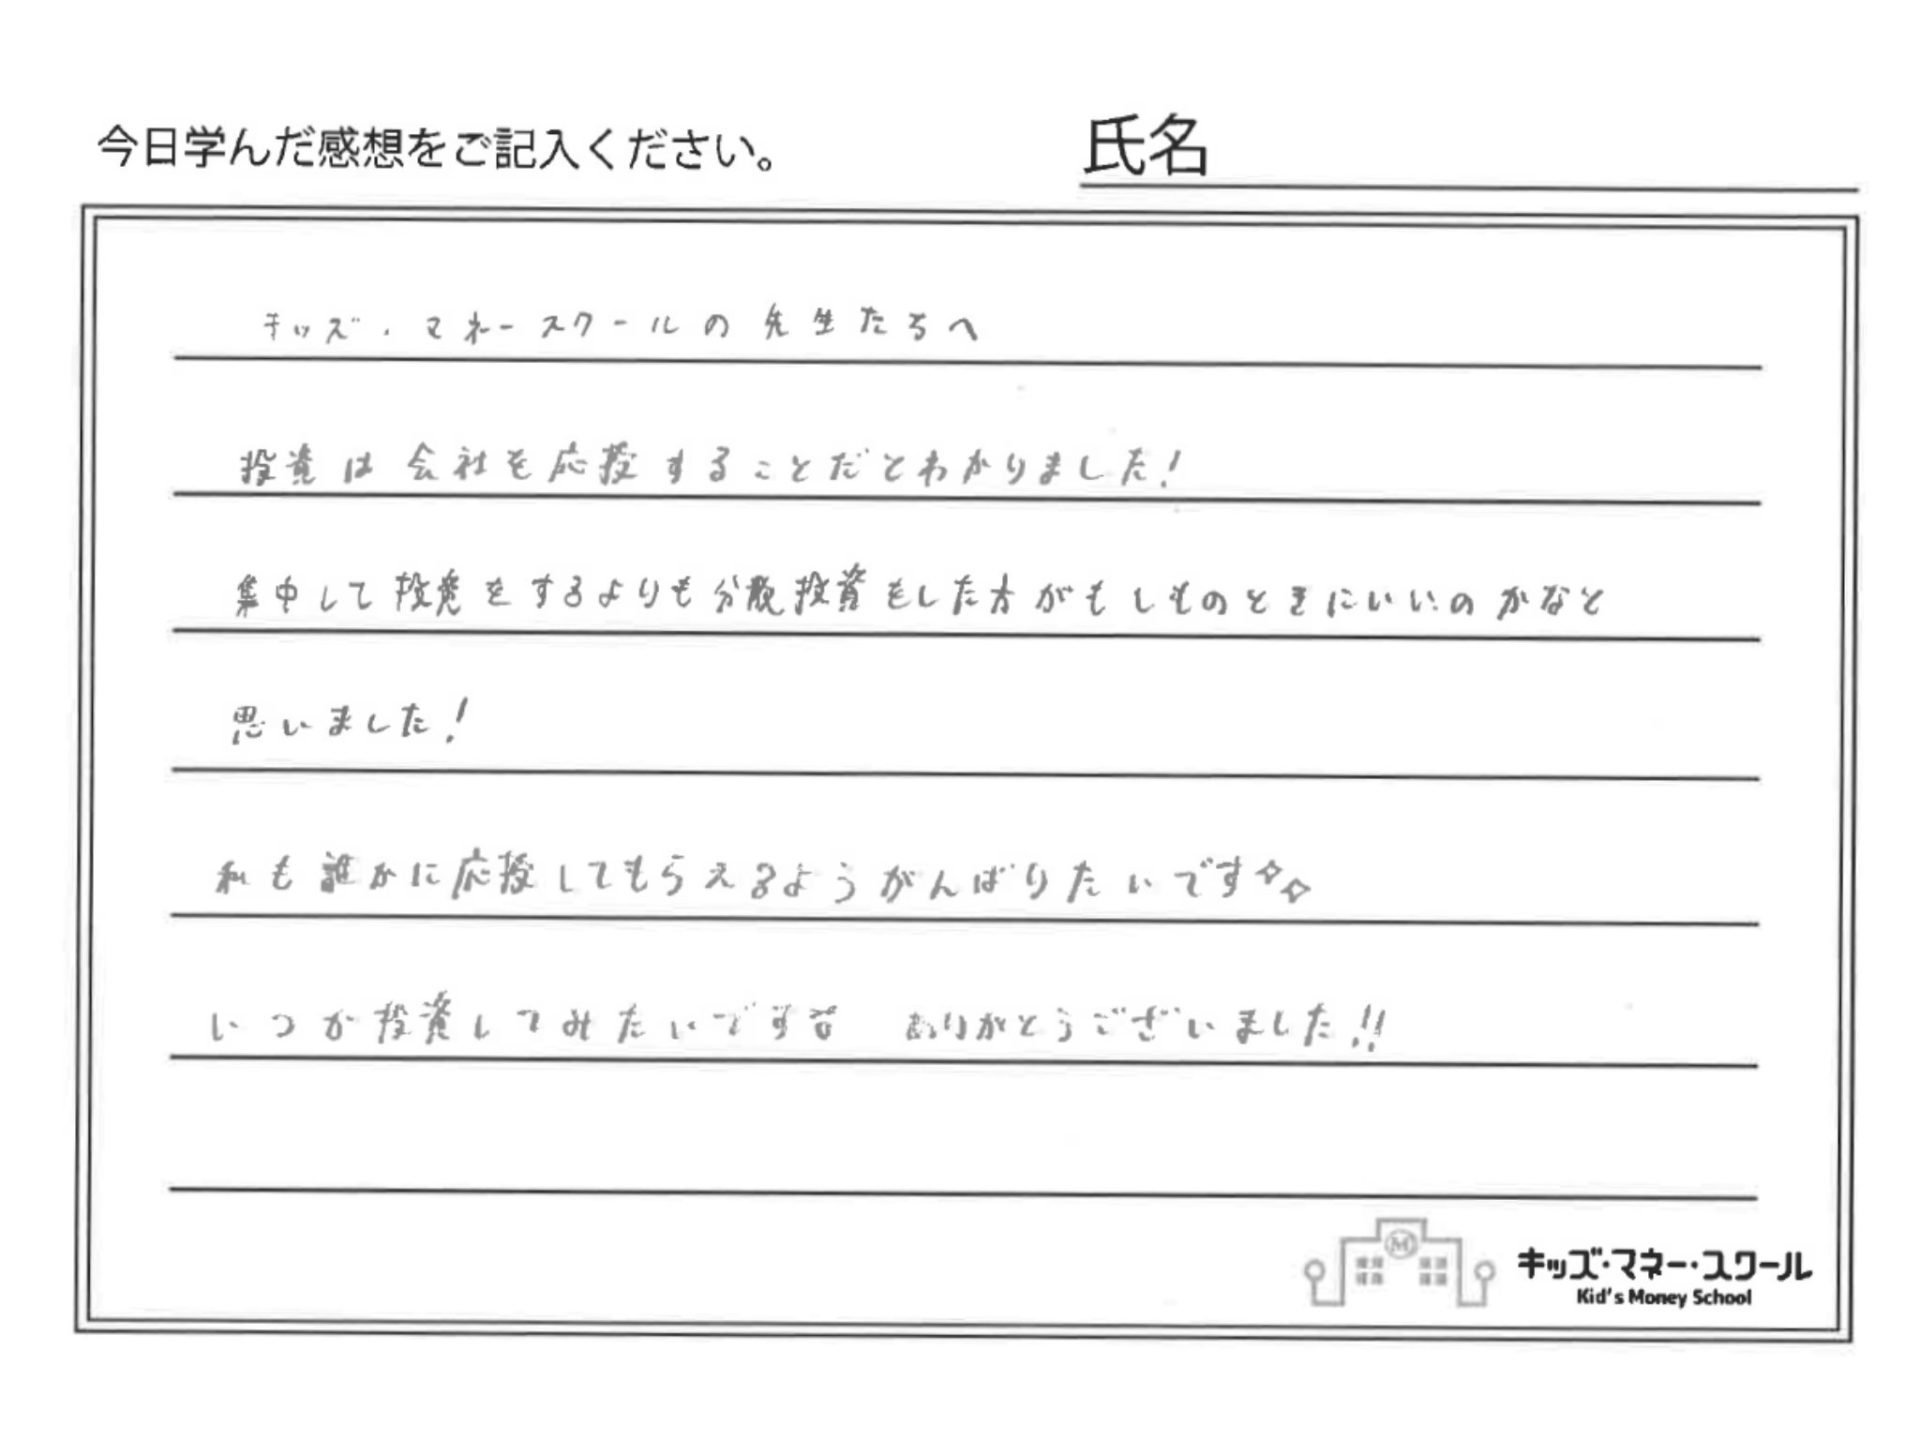 今日学んだ感想をご記入ください。
氏名
キッズ・マネースクールの先生たちへ
投資は会社を応援することだとわかりました!
集中して投資をするよりも分散投資をした方がもしものときにいいのかなと
思いました!
私も誰かに応援してもらえるようがんばりたいです✧✧
いつか投資してみたいです ありがとうございました!!
M
キッズ・マネー・スクール
Kid's Money School